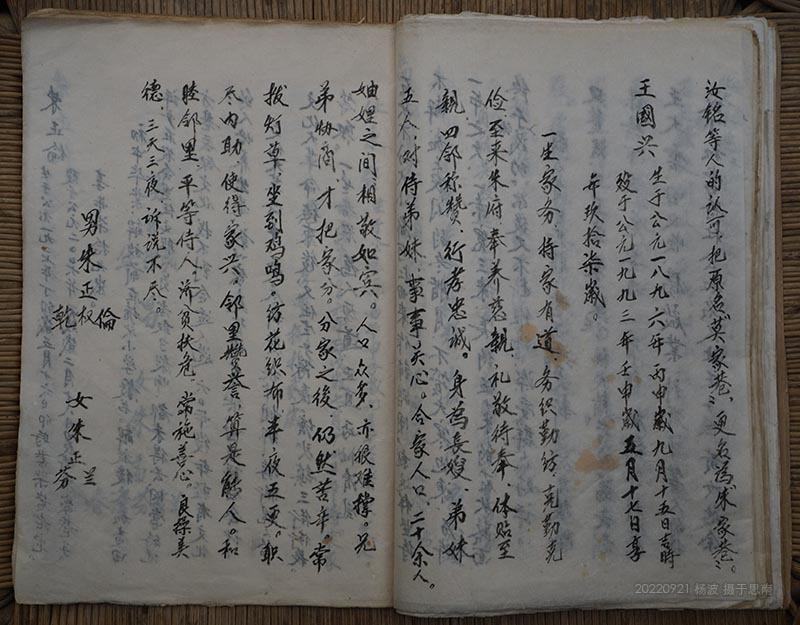 汝铭等人的认可，把原名莫家巷，更名為朱家巷。
王國兴
生于公元一八九六年丙申歲九月十五日吉時
殁于公元一九九三年壬申歲五月十七日享
年玖拾柒歲。
一生家务，持家有道，务织勤纺，克勤克
俭，至来朱府奉养慈親，礼敬待奉，体贴至
親，四邻称赞，行孝忠诚。身為長嫂，弟妹
五人，对待弟妹，事事关心。合家人口二十余人。
妯娌之间相敬如宾。人口众多，亦很难撑。兄
弟协商，才把家分。分家之後，仍然苦辛，常
拨灯草，坐到鸡鸣。纺花织布，半夜五更。职
尽内助，使得家兴。邻里赞誉，算是能人。和
睦邻里，平等侍人。济贫扶危，常施善心。良操美
德，三天三夜，诉说不尽。
男朱正权
乾 倫
女朱正兰
芬
20220921 杨波 摄于思南